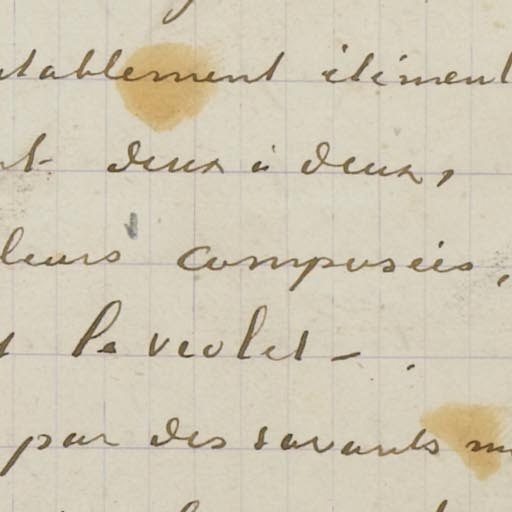 tablement élément
deux à deux,
leurs composées,
le violet -
par des savants